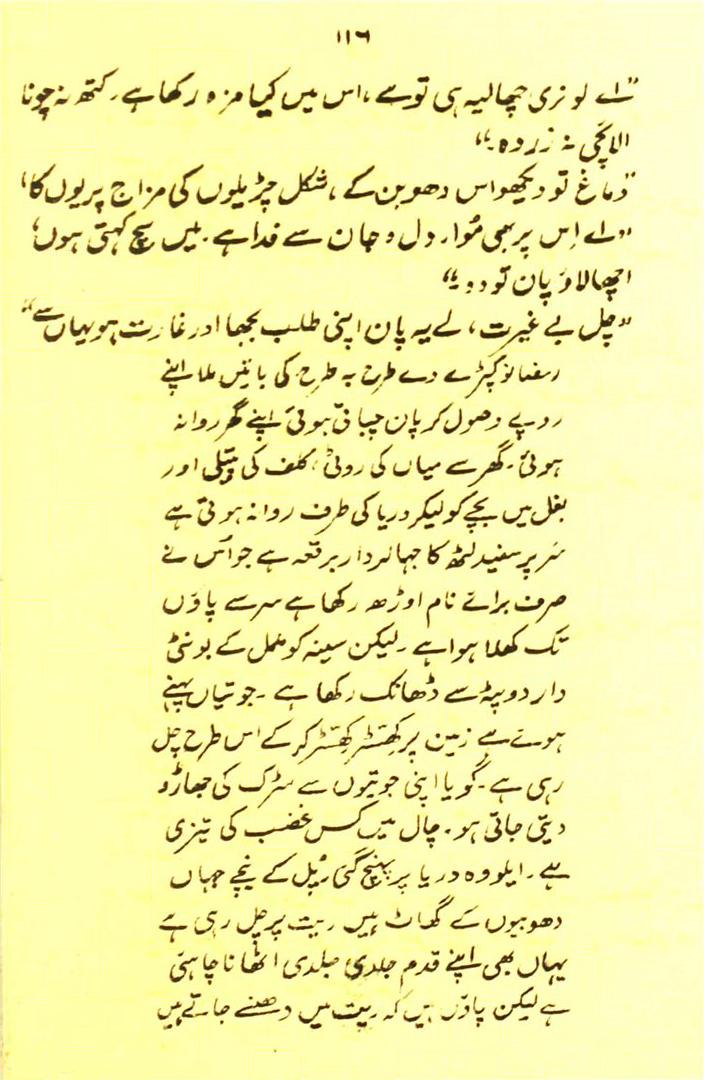 ۱۱۶
"اے لو نری چھالیہ ہی تو ہے، اس میں کیا مزہ رکھا ہے۔ کتھ نہ چونا
الائچی نہ زردہ۔"
"دماغ تو دیکھو اس دھوبن کے، شکل چڑیلوں کی مزاج پریوں کا"
"اے اِس پر بھی مُوا دل و جان سے فدا ہے۔ میں سچ کہتی ہوں،
اچھا لاؤ پان تو دو۔"
"چل بے غیرت، لے یہ پان اپنی طلب بجھا اور غارت ہو یہاں سے"
رمضانو کپڑے دے طرح بہ طرح کی باتیں ملا اپنے
روپے وصول کر پان چباتی ہوئی اپنے گھر روانہ
ہوئی۔ گھر سے میاں کی روٹی، کلف کی پتیلی اور
بغل میں بچے کو لیکر دریا کی طرف روانہ ہوتی ہے
سر پر سفید لٹھ کا جھالردار برقعہ ہے جو اُس نے
صرف برائے نام اوڑھ رکھا ہے سر سے پاؤں
تک کھلا ہوا ہے۔ لیکن سینہ کو ململ کے بونٹی
دار دوپٹہ سے ڈھانک رکھا ہے۔ جوتیاں پہنے
ہوئے ہے زمین پر کھَتَڑ کھَتَڑ کر کے اس طرح چل
رہی ہے۔ گویا اپنی جوتیوں سے سڑک کی جھاڑو
دیتی جاتی ہو۔ چال میں کس غضب کی تیزی
ہے۔ ایلو وہ دریا پر پہنچ گئی پُل کے نیچے جہاں
دھوبیوں کے گھاٹ ہیں ریت پر چل رہی ہے
یہاں بھی اپنے قدم جلدی جلدی اٹھانا چاہتی
ہے لیکن پاؤں ہیں کہ ریت میں دھنسے جاتے ہیں